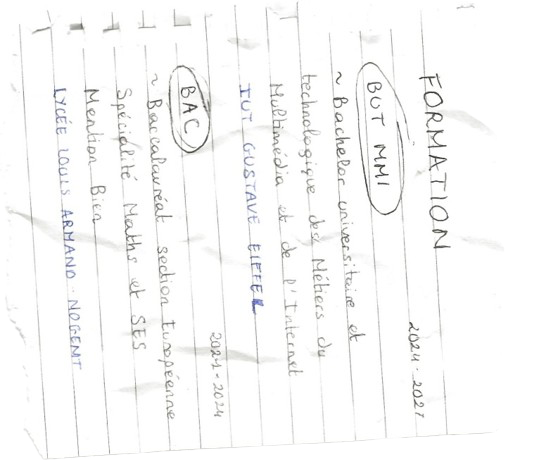 FORMATION
2024 - 2027
BUT MMI
~ Bachelor universitaire et
technologique des Métiers du
Multimédia et de l'Internet
IUT GUSTAVE EIFFEL
2021 - 2024
BAC
~ Baccalauréat section Européenne
Spécialité Maths et SES
Mention Bien
LYCÉE LOUIS ARMAND - NOGENT